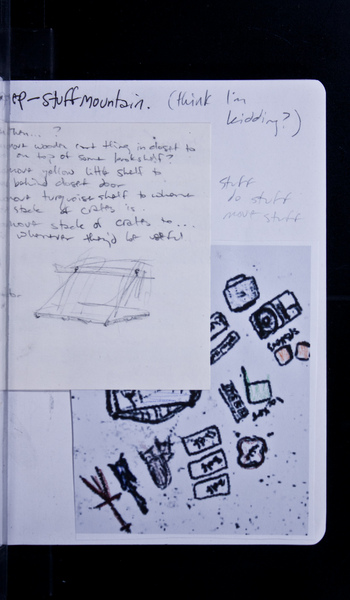 ep-stuff mountain. (think I'm
kidding?)
then...?
move wooden cart thing in closet to
on top of some bookshelf?
move yellow little shelf to
behind closet door
move turquoise shelf to where
stack of crates is.
move stack of crates to...
wherever they'd be useful
stuff
do stuff
move stuff